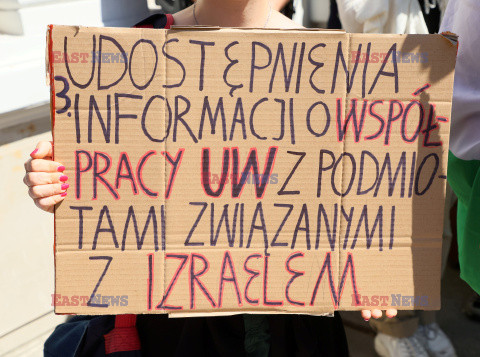 3. UDOSTĘPNIENIA
INFORMACJI O WSPÓŁ-
PRACY UW Z PODMIO-
TAMI ZWIĄZANYMI
Z IZRAELEM
EAST NEWS
EAST NEWS
EAST NEWS
EAST NEWS
EAST NEWS